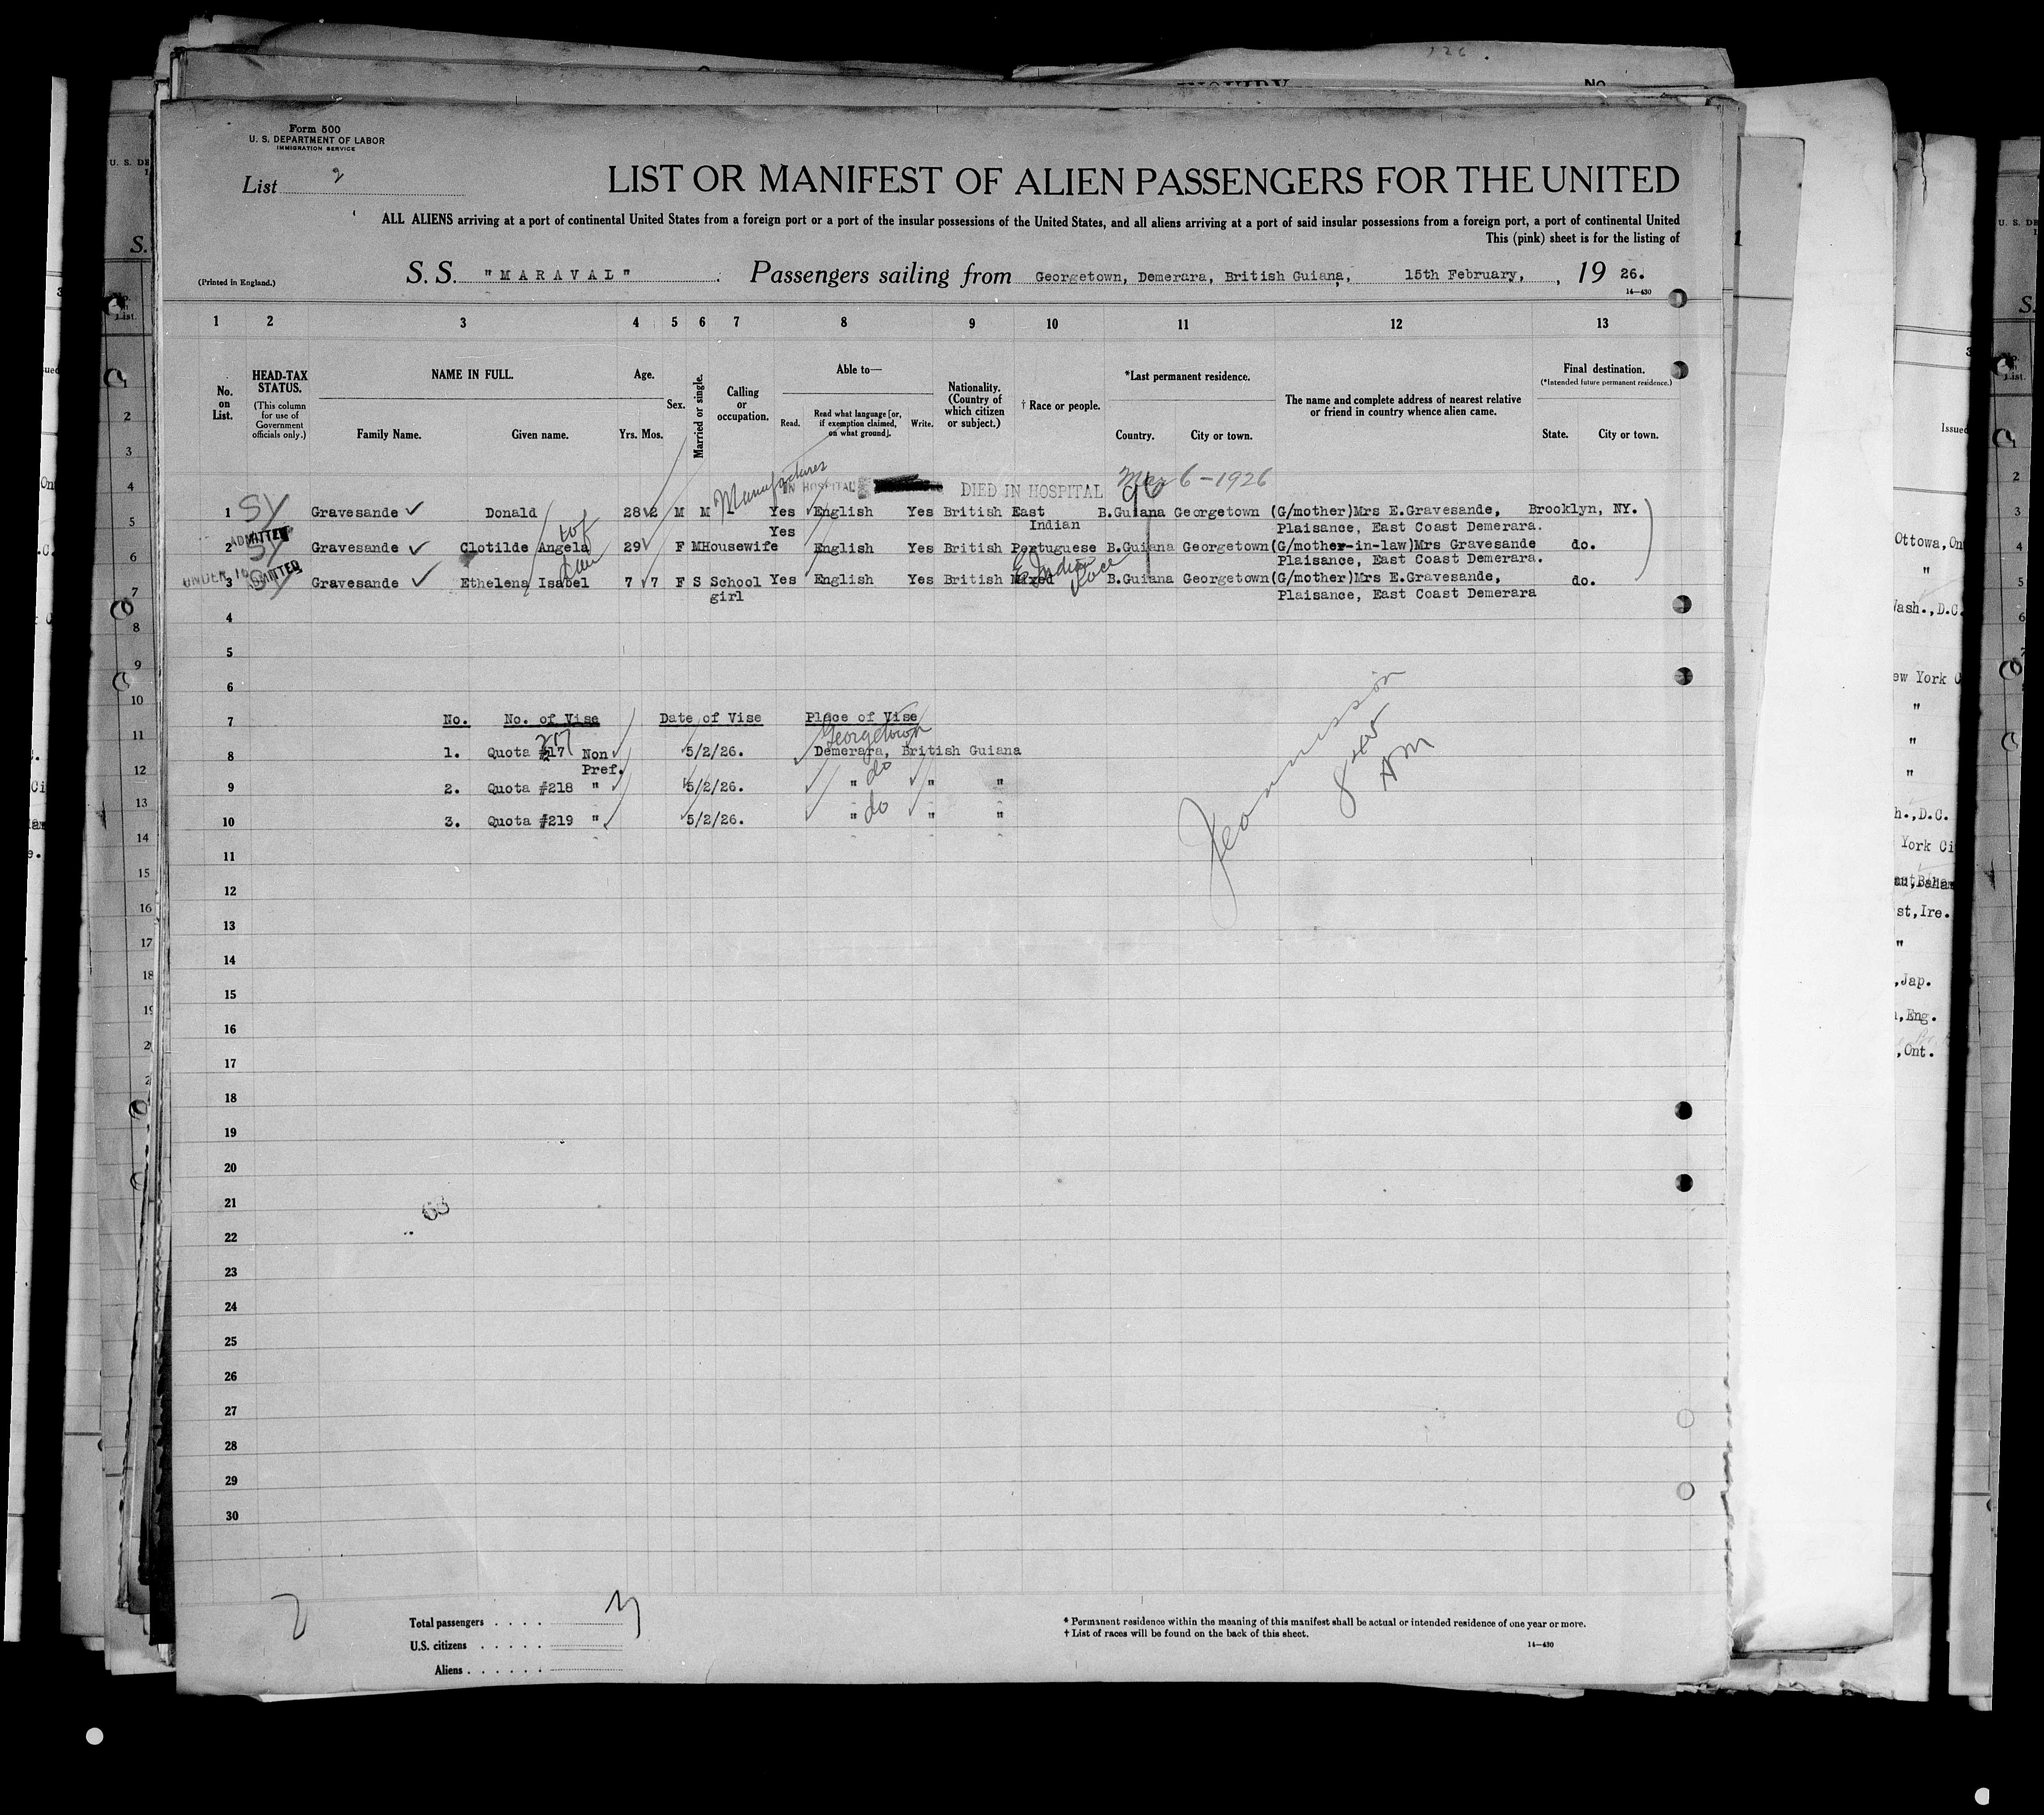 Form 500
U. S. DEPARTMENT OF LABOR
IMMIGRATION SERVICE
List 2
LIST OR MANIFEST OF ALIEN PASSENGERS FOR THE UNITED
ALL ALIENS arriving at a port of continental United States from a foreign port or a port of the insular possessions of the United States, and all aliens arriving at a port of said insular possessions from a foreign port, a port of continental United
This (pink) sheet is for the listing of
(Printed in England.)
S. S. "MARAVAL" Passengers sailing from Georgetown, Demerara, British Guiana, 15th February, , 19 26.
14—430
1 2 3 4 5 6 7 8 9 10 11 12 13
No. on List.
HEAD-TAX STATUS.
(This column for use of Government officials only.)
NAME IN FULL.
Family Name. Given name.
Age.
Yrs. Mos.
Sex.
Married or single.
Calling or occupation.
Able to—
Read. Read what language [or, if exemption claimed, on what ground]. Write.
Nationality. (Country of which citizen or subject.)
† Race or people.
*Last permanent residence.
Country. City or town.
The name and complete address of nearest relative or friend in country whence alien came.
Final destination.
(*Intended future permanent residence.)
State. City or town.
IN HOSPITAL DIED IN HOSPITAL Mar 6-1926
Manufactures
1 SY Gravesande Donald 28 2 M M Yes English Yes British East Indian B.Guiana Georgetown (G/mother)Mrs E.Gravesande, Brooklyn, NY.
Plaisance, East Coast Demerara.
ADMITTED
2 SY Gravesande Clotilde Angela 29 F M Housewife Yes English Yes British Portuguese B.Guiana Georgetown (G/mother-in-law)Mrs Gravesande do.
Plaisance, East Coast Demerara.
UNDER 16 ADMITTED
E Indian race
3 SY Gravesande Ethelena Isabel 7 7 F S School girl Yes English Yes British Mixed B.Guiana Georgetown (G/mother)Mrs E.Gravesande, do.
Plaisance, East Coast Demerara
4
5
6
7 No. No. of Vise Date of Vise Place of Vise
217 Georgetown
8 1. Quota #217 Non Pref. 5/2/26. Demerara, British Guiana
9 2. Quota #218 " 5/2/26. " do " "
10 3. Quota #219 " 5/2/26. " do " "
11
12
13
14
15
16
17
18
19
20
21
22
23
24
25
26
27
28
29
30
63
Total passengers
U.S. citizens
Aliens
* Permanent residence within the meaning of this manifest shall be actual or intended residence of one year or more.
† List of races will be found on the back of this sheet.
14—430